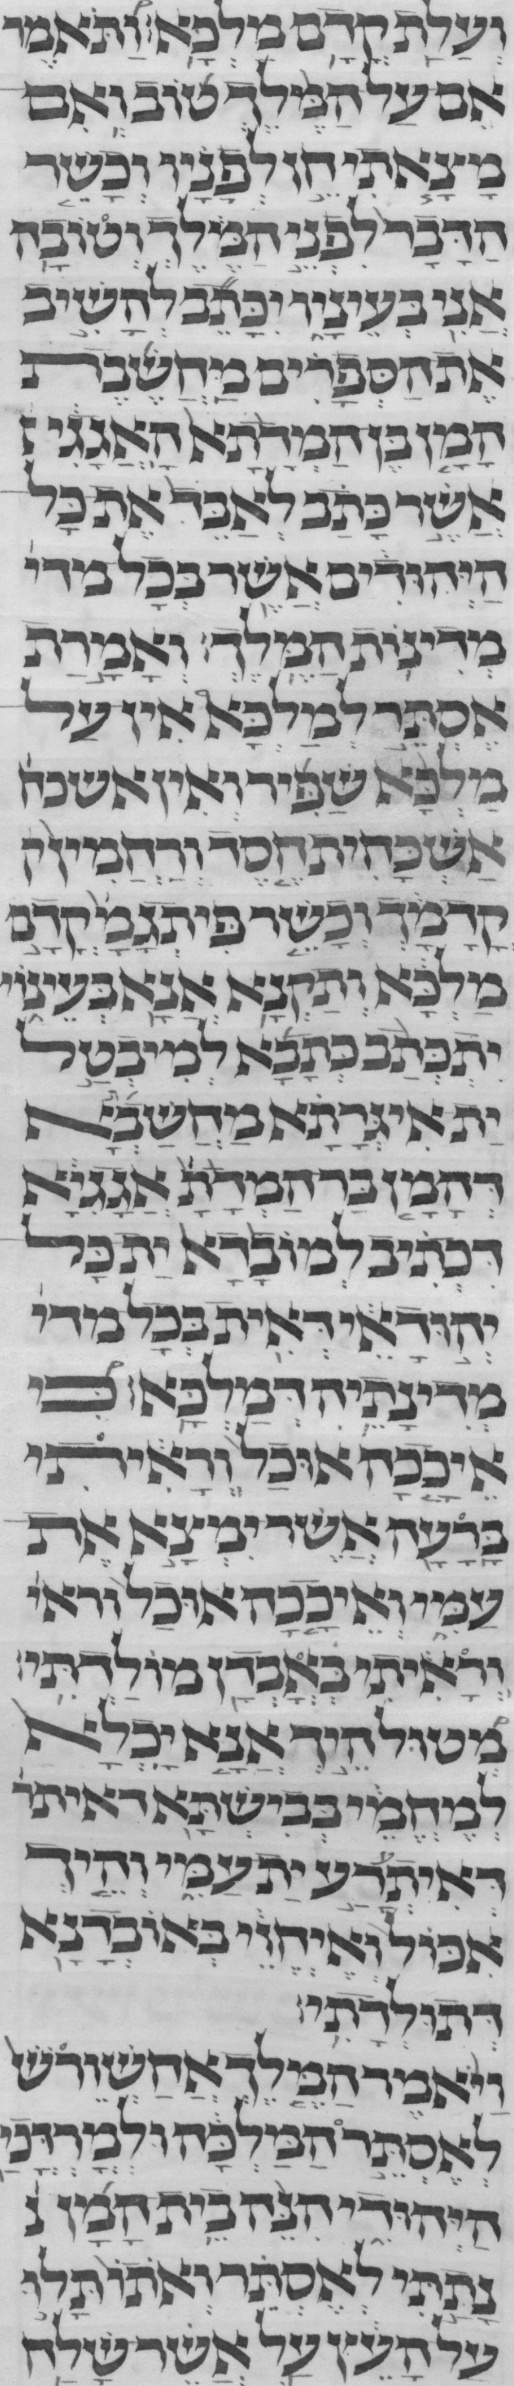 ועלת קדם מלכא׃ ותאמר
אם על המלך טוב ואם
מצאתי חן לפניו וכשר
הדבר לפני המלך וטובה
אני בעיניו יכתב להשיב
את הספרים מחשבת
המן בן המדתא האגגי
אשר כתב לאבד את כל
היהודים אשר בכל מדי
מדינות המלך׃ ואמרת
אסתר למלכא אין על
מלכא שפיר ואין אשכח
אשכחית חסד ורחמין ק
קדמך וכשר פיתגמ קדם
מלכא ותקנא אנא בעינוי
יתכתב כתבא למיבטל
ית איגרתא מחשבא
דהמן בר המדתא אגגיא
דכתיב למובדא ית כל
יהודאי דאית בכל מדי
מדינתיה דמלכא׃ כי
איככה אוכל וראיתי
ברעה אשר ימצא את
עמי ואיככה אוכל וראי
וראיתי באבדן מולדתי׃
מטול היך אנא יכלא
למחמי בבישתא דאיתר
דאיתרע ית עמי והיך
אכול ואיחוי באובדנא
דתולדתי׃
ויאמר המלך אחשורש
לאסתר המלכה ולמרדכי
היהודי הנה בית המן נ
נתתי לאסתר ואתו תלו
על העץ על אשר שלח